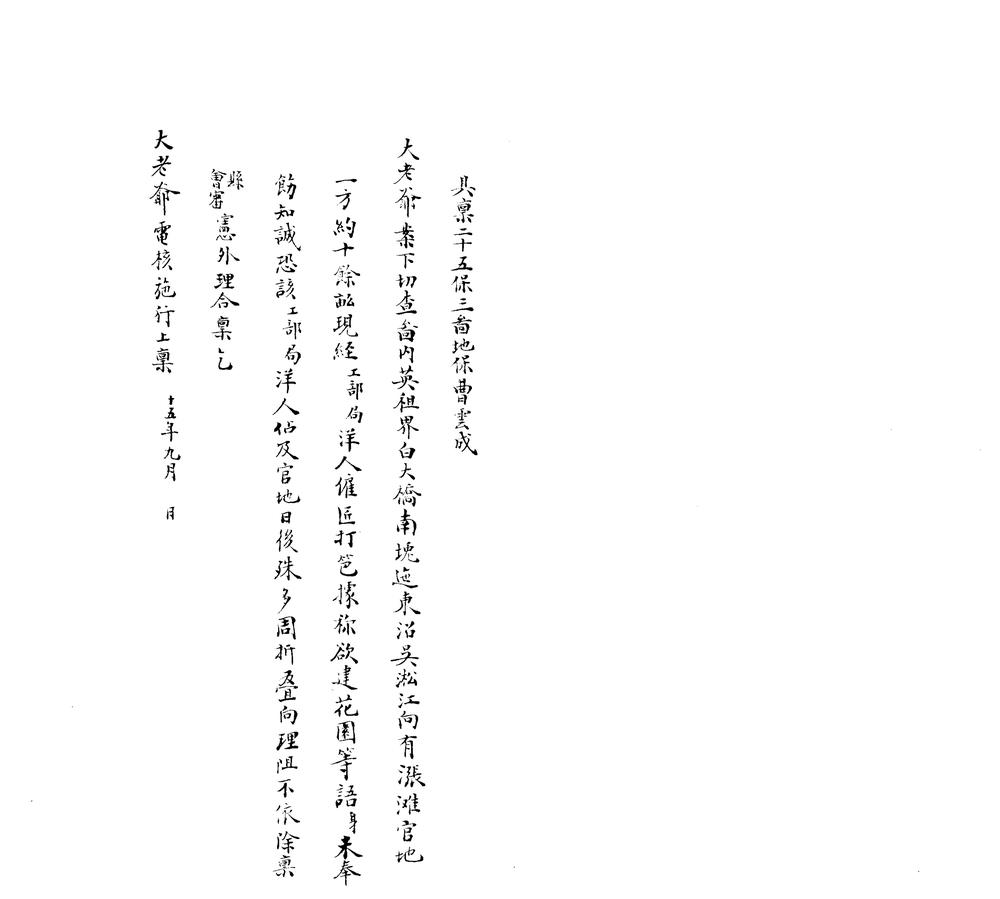 具稟二十五保三啚地保曹雲成
大老爺案下切查啚内英租界白大橋南塊迤東沿吳淞江向有漲滩官地
一方約十餘畝現經工部局洋人僱匠打笆據称欲建花園等語身未奉
飭知誠恐該工部局洋人佔及官地日後殊多周折叠向理阻不依除稟
縣會審憲外理合稟乞
大老爺電核施行上稟 十五年九月 日